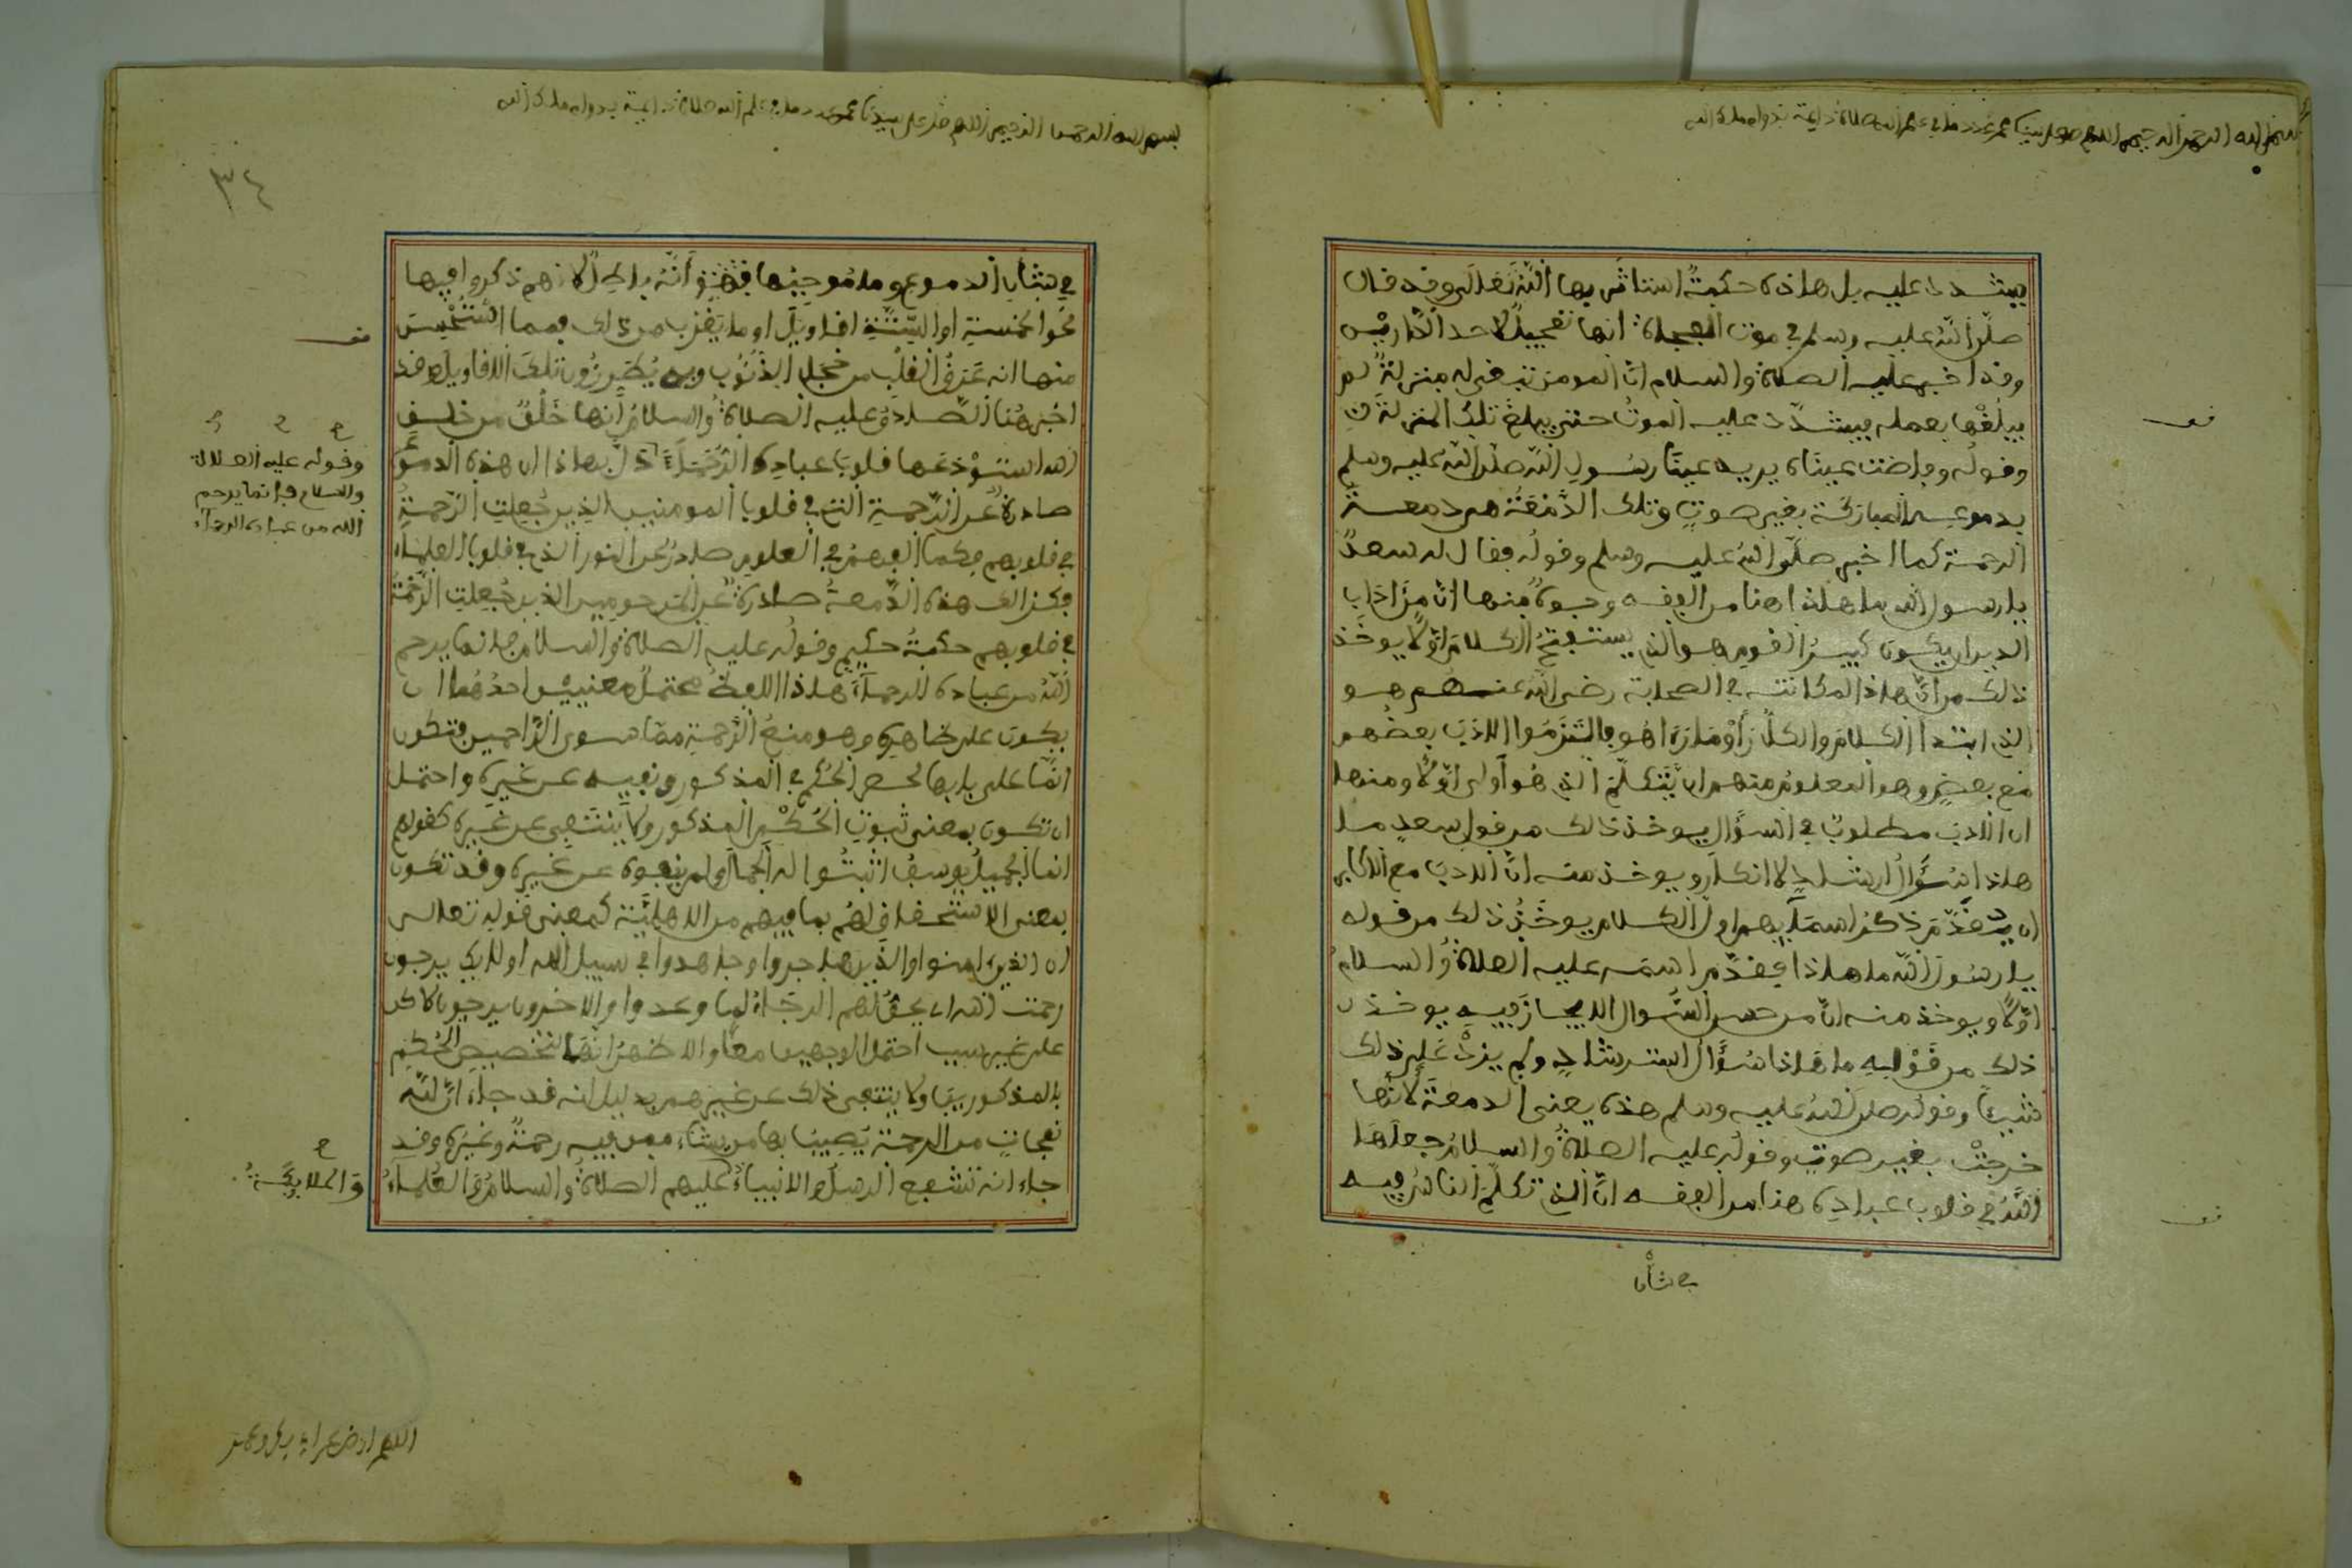 بسم الله الرحمن الرحيم اللهم صل على سيدنا محمد عدد ما في علم الله صلاة دايمة بدوام ملك الله
فيشدد عليه بل هاذه حكمةٌ استاثر بها اللّه تعالى وقد قال
صلّى اللّه عليه وسلم في موت الفجاة انها تعجيلٌ لاحد الدّارين
وقد اخبر عليه الصلاة والسلام انّ المومن تبقى له منزلةٌ لم
يبلُغْها بعمله فيشدّد عليه الموتُ حتى يبلغ تلك المنزلة
وقولُه وفاضت عيناه يريد عينَا رسُولِ اللّه صلّى اللّه عليه وسلم
بدموعه المباركة بغير صوتٍ وتلك الدّمْعَةُ هي دمعة
الرحمة كما اخبر صلّى اللّه عليه وسلم وقولُه فقال له سعدٌ
يا رسول اللّه ما هاذا هنا من الفقه وجوهٌ منها انّ من اداب
الدين ان يكون كبيرُ القوم هو الذي يستفتحُ الكلامَ اوّلا يوخذ
ذلك من انّ هاذا المكانته في الصحابة رضي اللّه عنهم هو
الذي ابتدا الكلام والكلّ رَأَوْا مَا رَءَا هُو فالتَزَمُوا الادَبَ بعضُهم
مَع بعضٍ وهو المعلومُ منهم ان يَتكلّمَ الذي هُو أولى اوّلا ومنها
ان الادبَ مطلوبٌ في السؤال يوخذ ذالك من قول سعدٍ ما
هاذا سُؤَالُ ارشادٍ لا انكارٍ ويوخذ منه انّ الادبَ مع الاكابر
ان يتقدّمَ ذكرُ اسمايهم اوّلَ الكلام يوخَذُ ذلك من قوله
يا رسُولَ اللّه ما هاذا فقدّم اسمَه عليه الصلاةُ والسلامُ
اوّلا ويوخذ منه انّ من حسن السّوال الايجازَ فيه يوخذ
ذلك من قَوْلِهِ ما هَاذا سُؤَالُ استرشادٍ ولم يزِدْ عَلى ذلك
شيئاً وقوله صلى اللّه عليه وسلم هذه يعني الدمعةَ لانّها
خرجتْ بغير صوتٍ وقولُه عليه الصلاةُ والسلامُ جعلَها
اللّهُ في قلوب عباده هنا من الفقه انّ الذي تكلّمَ الناسُ فيه
في شأن
بسم الله الرحمن الرحيم اللهم صل على سيدنا محمد عدد ما في علم الله صلاة دايمة بدوام ملك الله
٣٤
في شأن الدموع وما مُوجبُها أنّهُ باطلٌ لانهم ذكروا فيها
نحوا لخمسةِ او السّتّةِ اقاويلَ او ما يَقرُب من ذلك فمما استُحْسِنَ
منها انه عَرَقُ القلبِ من خجل الذّنُوب وبه يُطَرِّزُون تلكَ الاقاويل وقد
اخبر هُنا الصّادقُ عليه الصلاةُ والسلامُ أنها خَلْقٌ من خلق
الله استَوْدَعَها قلوبَ عبادِه الرُّحَماءِ دلّ بهاذا ان هذه الدموعَ
صادرةٌ عن الرّحمةِ التي في قلوب المومنين الذين جُعِلتِ الرّحمةُ
في قلوبهم فكما الفهمُ في العلوم صادرٌ عن النور الذي في قلوب العلماء
فكذالك هذه الدّمعةُ صادرةٌ عن المرحومين الذين جُعِلتِ الرّحمةُ
في قلوبهم حكمةُ حكيمٍ وقولُه عليه الصلاة والسلام فإنما يرحم
اللّهُ من عباده الرحماءَ هاذا اللفظُ محتملٌ معنيَيْن احدُهُما ان
يكون على ظاهره وهو منعُ الرّحمةِ ممّا سوى الرّاحمين فتكون
انّما على بابها لحصر الحُكم في المذكور ونفيه عن غيرِه واحتمل
ان تكون بمعنى ثبوتِ الحُكْمِ المذكورِ ولا ينتفِي عن غيرِه كقولهم
انما الجميلُ يوسفُ اثبتُوا له الجمالَ ولم ينفوه عن غيرِه وقد تكون
بمعنى الاستحقاقِ لهُم بما فيهم من الاهليّة كمعنى قوله تعالى
ان الذين امنوا والذين هاجروا وجاهدوا في سبيل الله اولايك يرجون
رحمت الله اي يحقُّ لهم الرجاءُ لما وعدوا والاخرون يرجون لاكن
على غير سبب احتمل الوجهين معًا والاظهرُ انّها لتخصيص الحُكم
بالمذكورين ولا ينتفى ذلك عن غيرهم بدليل انه قد جاءَ انّ للّه
نفحاتٍ من الرحمة يُصِيبُ بها من يشاء ممن فيه رحمةٌ وغيرُه وقد
جاءَ انه تشفع الرسلُ والانبياءُ عليهم الصلاةُ والسلامُ والعُلماءُ
وقوله عليه الصلاة
والسلام فإنما يرحم
الله من عباده الرحماءَ
والملايكةُ
اللهم ارض عن ابي بكر وعمر